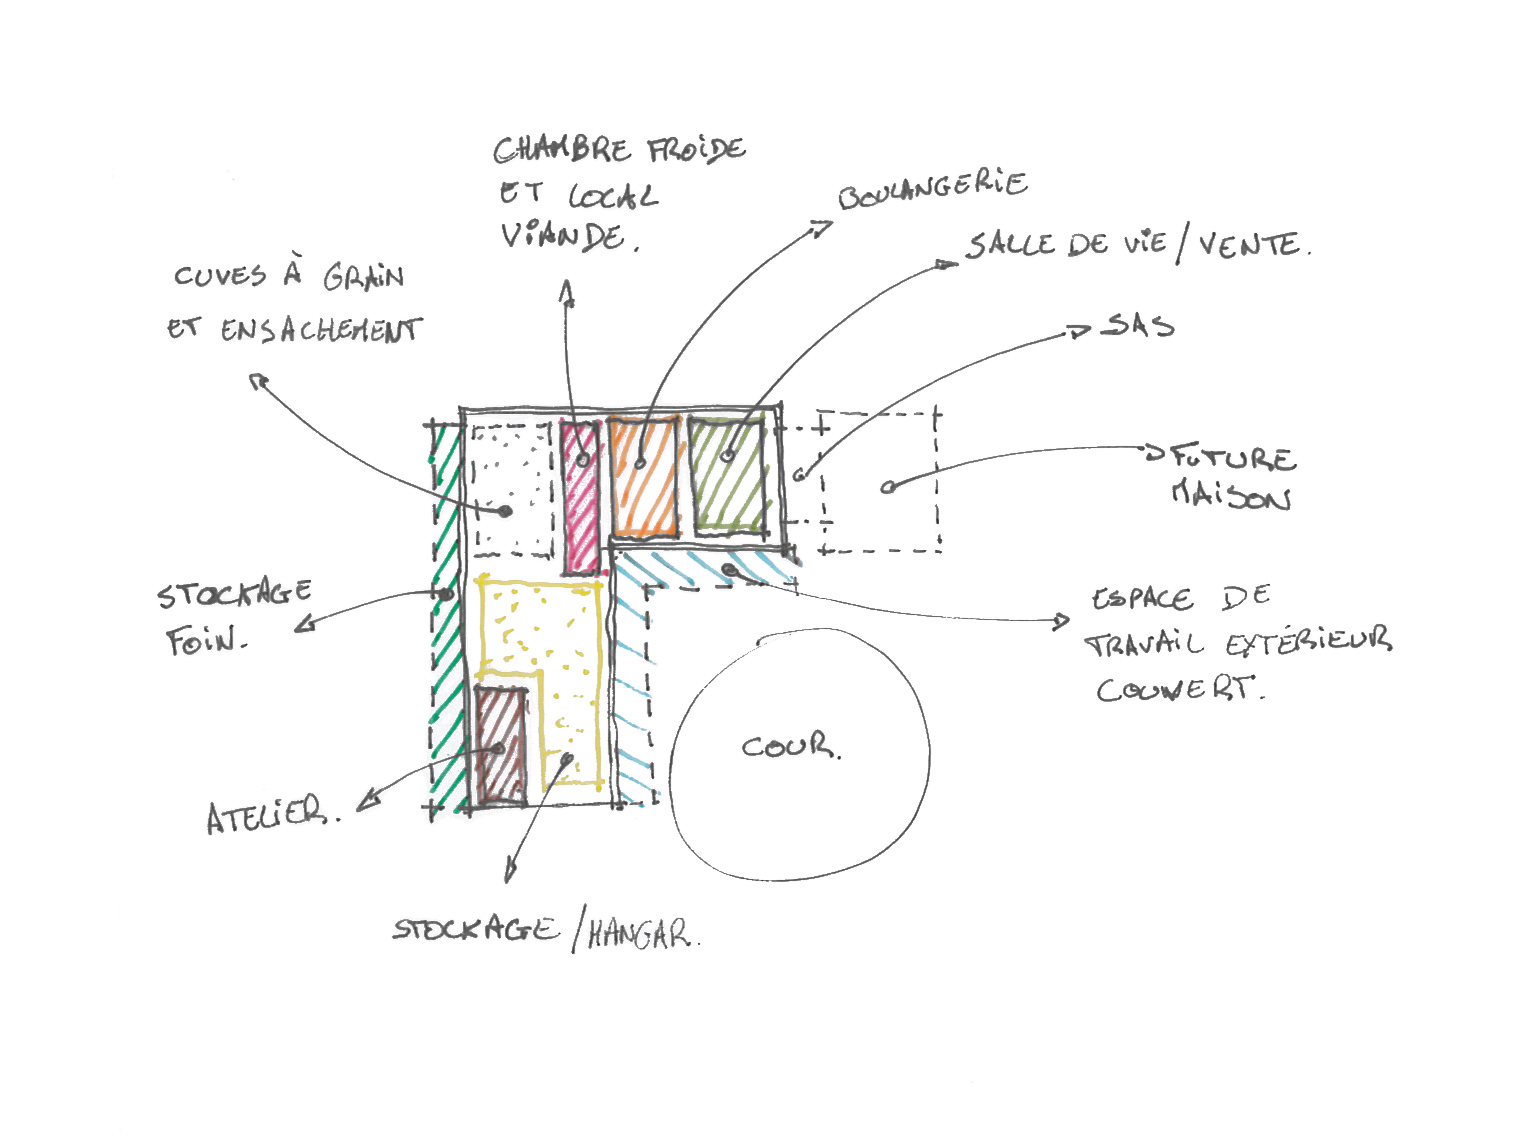 CHAMBRE FROIDE
ET LOCAL
VIANDE.
BOULANGERIE
SALLE DE VIE / VENTE.
CUVES À GRAIN
ET ENSACHEMENT
SAS
FUTURE
MAISON
STOCKAGE
FOIN.
ESPACE DE
TRAVAIL EXTÉRIEUR
COUVERT.
COUR.
ATELIER.
STOCKAGE / HANGAR.